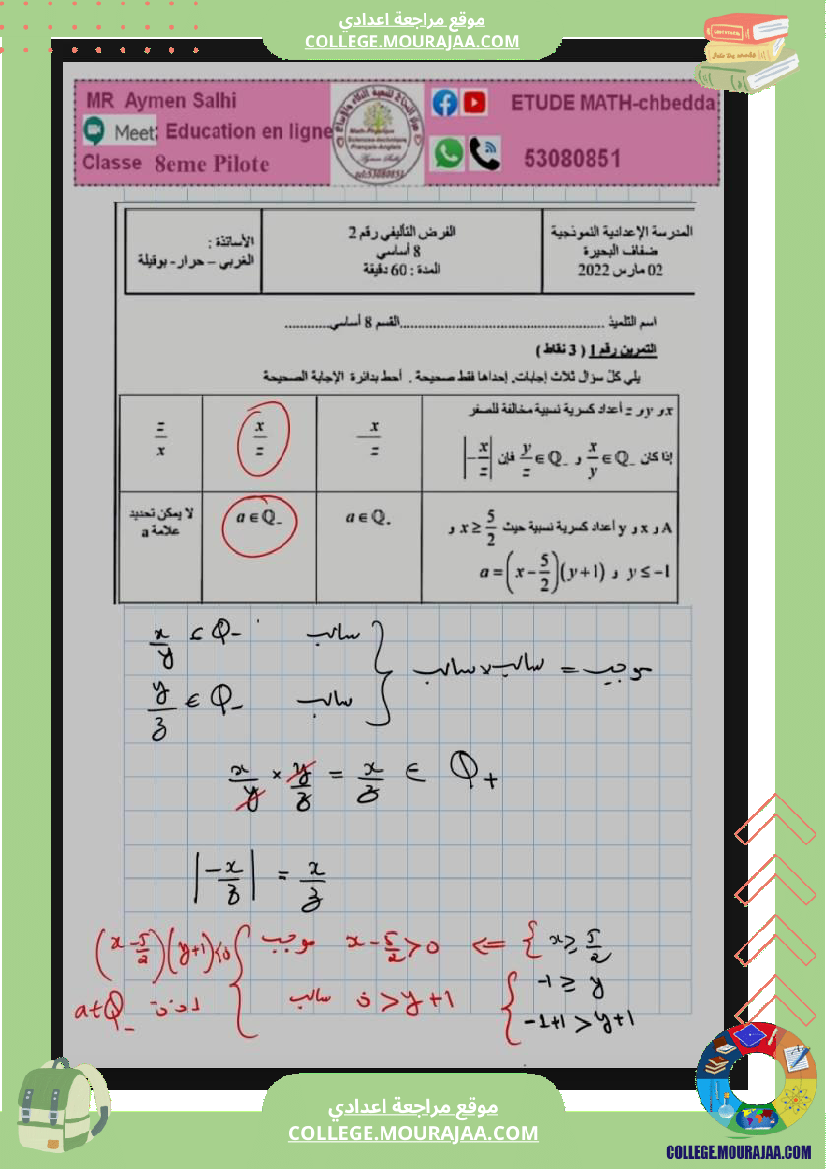 موقع مراجعة اعدادي
COLLEGE.MOURAJAA.COM
MR Aymen Salhi
Meet: Education en ligne
Classe 8eme Pilote
ETUDE MATH-chbedda
53080851
المدرسة الإعدادية النموذجية
ضفاف البحيرة
02 مارس 2022
الفرض التأليفي رقم 2
8 أساسي
المدة : 60 دقيقة
الأساتذة :
الغربي – حرار- بوقيلة
اسم التلميذ ............................القسم 8 أساسي............
التمرين رقم 1 ( 3 نقاط )
يلي كل سؤال ثلاث إجابات, إحداها فقط صحيحة . أحط بدائرة الإجابة الصحيحة
x و y و z أعداد كسرية نسبية مخالفة للصفر
إذا كان x/y ∈ Q₋ و y/z ∈ Q₋ فإن |-x/z|
-x/z
x/z
z/x
A و x و y أعداد كسرية نسبية حيث x ≥ 5/2 و
y ≤ -1 و a = (x - 5/2)(y+1)
a ∈ Q₊
a ∈ Q₋
لا يمكن تحديد
علامة a
x/y ∈ Q₋ سالب
y/z ∈ Q₋ سالب
سالب × سالب = موجب
x/y × y/z = x/z ∈ Q₊
|-x/z| = x/z
x ≥ 5/2 ⇐ x - 5/2 > 0 موجب
(x - 5/2)(y+1) < 0
-1 ≥ y
-1+1 > y+1
0 > y+1 سالب
a ∈ Q₋
موقع مراجعة اعدادي
COLLEGE.MOURAJAA.COM
COLLEGE.MOURAJAA.COM